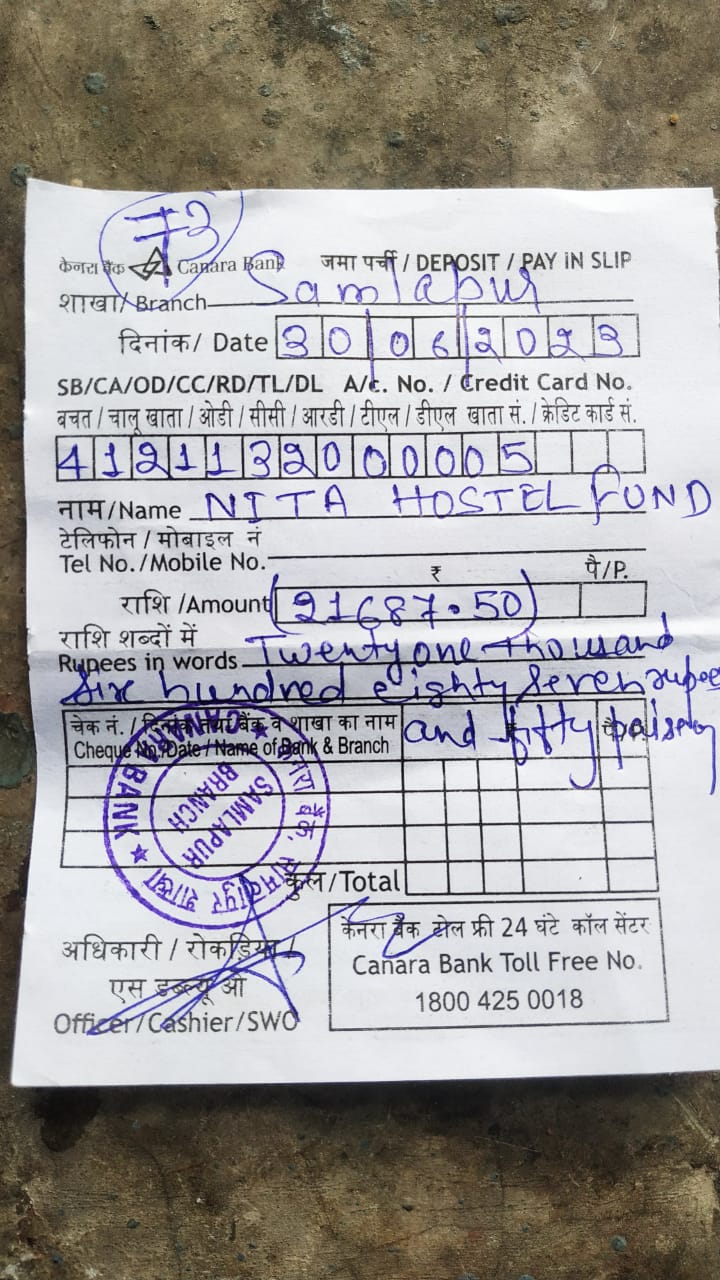 73
केनरा बैंक Canara Bank जमा पर्ची / DEPOSIT / PAY iN SLIP
शाखा/ Branch Samlapur
दिनांक/ Date 30 06 2023
SB/CA/OD/CC/RD/TL/DL A/c. No. / Credit Card No.
बचत / चालू खाता / ओडी / सीसी / आरडी / टीएल / डीएल खाता सं. / क्रेडिट कार्ड सं.
4121132000005
नाम/Name NITA HOSTEL FUND
टेलिफोन / मोबाइल नं
Tel No./Mobile No.
₹ पै/P.
राशि /Amount (21687.50)
राशि शब्दों में
Rupees in words Twenty one thousand
Six hundred eighty Seven rupee
चेक नं. / दिनांक तथा बैंक व शाखा का नाम and fifty paisa
Cheque No./Date / Name of Bank & Branch
CANARA BANK ★ केनरा बैंक, सामलापुर शाखा ★
SAMLAPUR
BRANCH
कुल/Total
अधिकारी / रोकड़िया /
एस डब्ल्यू ओ
Officer/Cashier/SWO
केनरा बैंक टोल फ्री 24 घंटे कॉल सेंटर
Canara Bank Toll Free No.
1800 425 0018